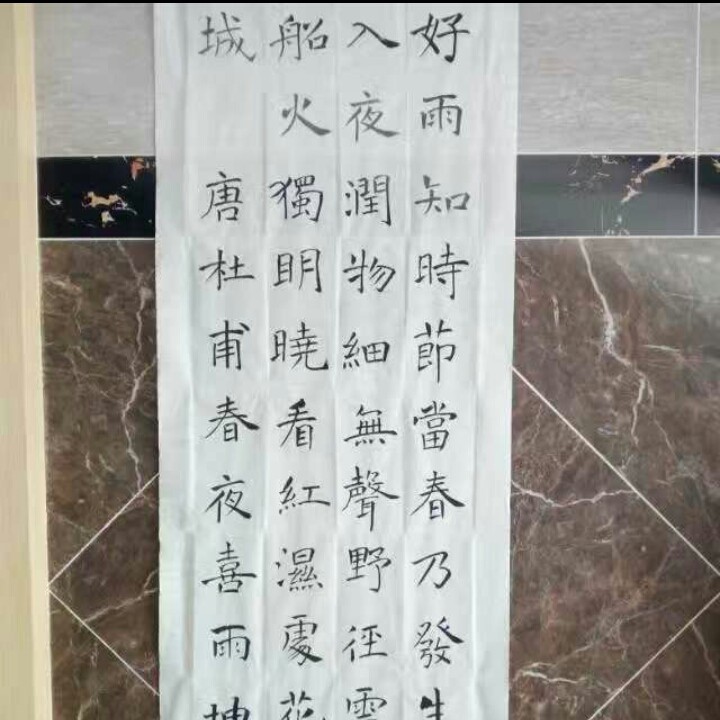 好雨知時節當春乃發生
入夜潤物細無聲野徑雲
船火獨明曉看紅濕處花
城 唐杜甫春夜喜雨